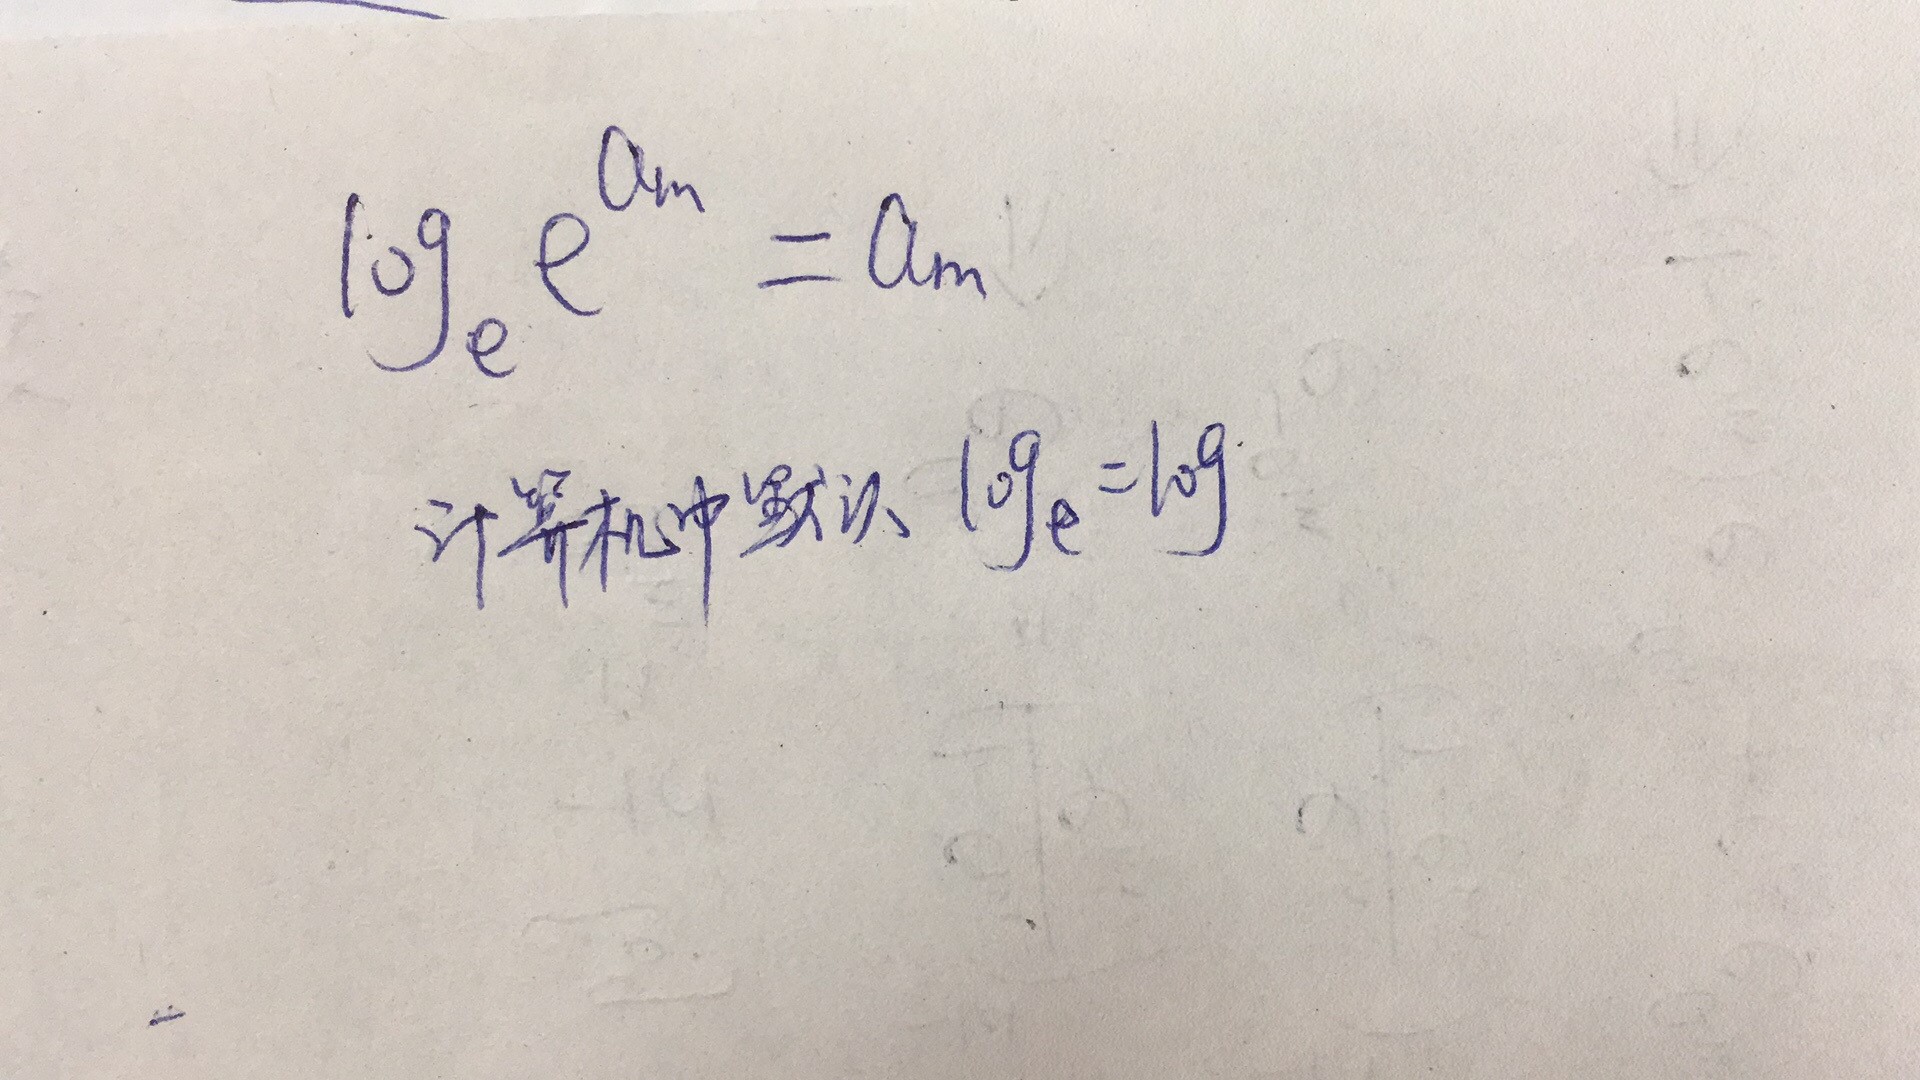 log_e e^{a_m} = a_m
计算机中默认 log_e = log